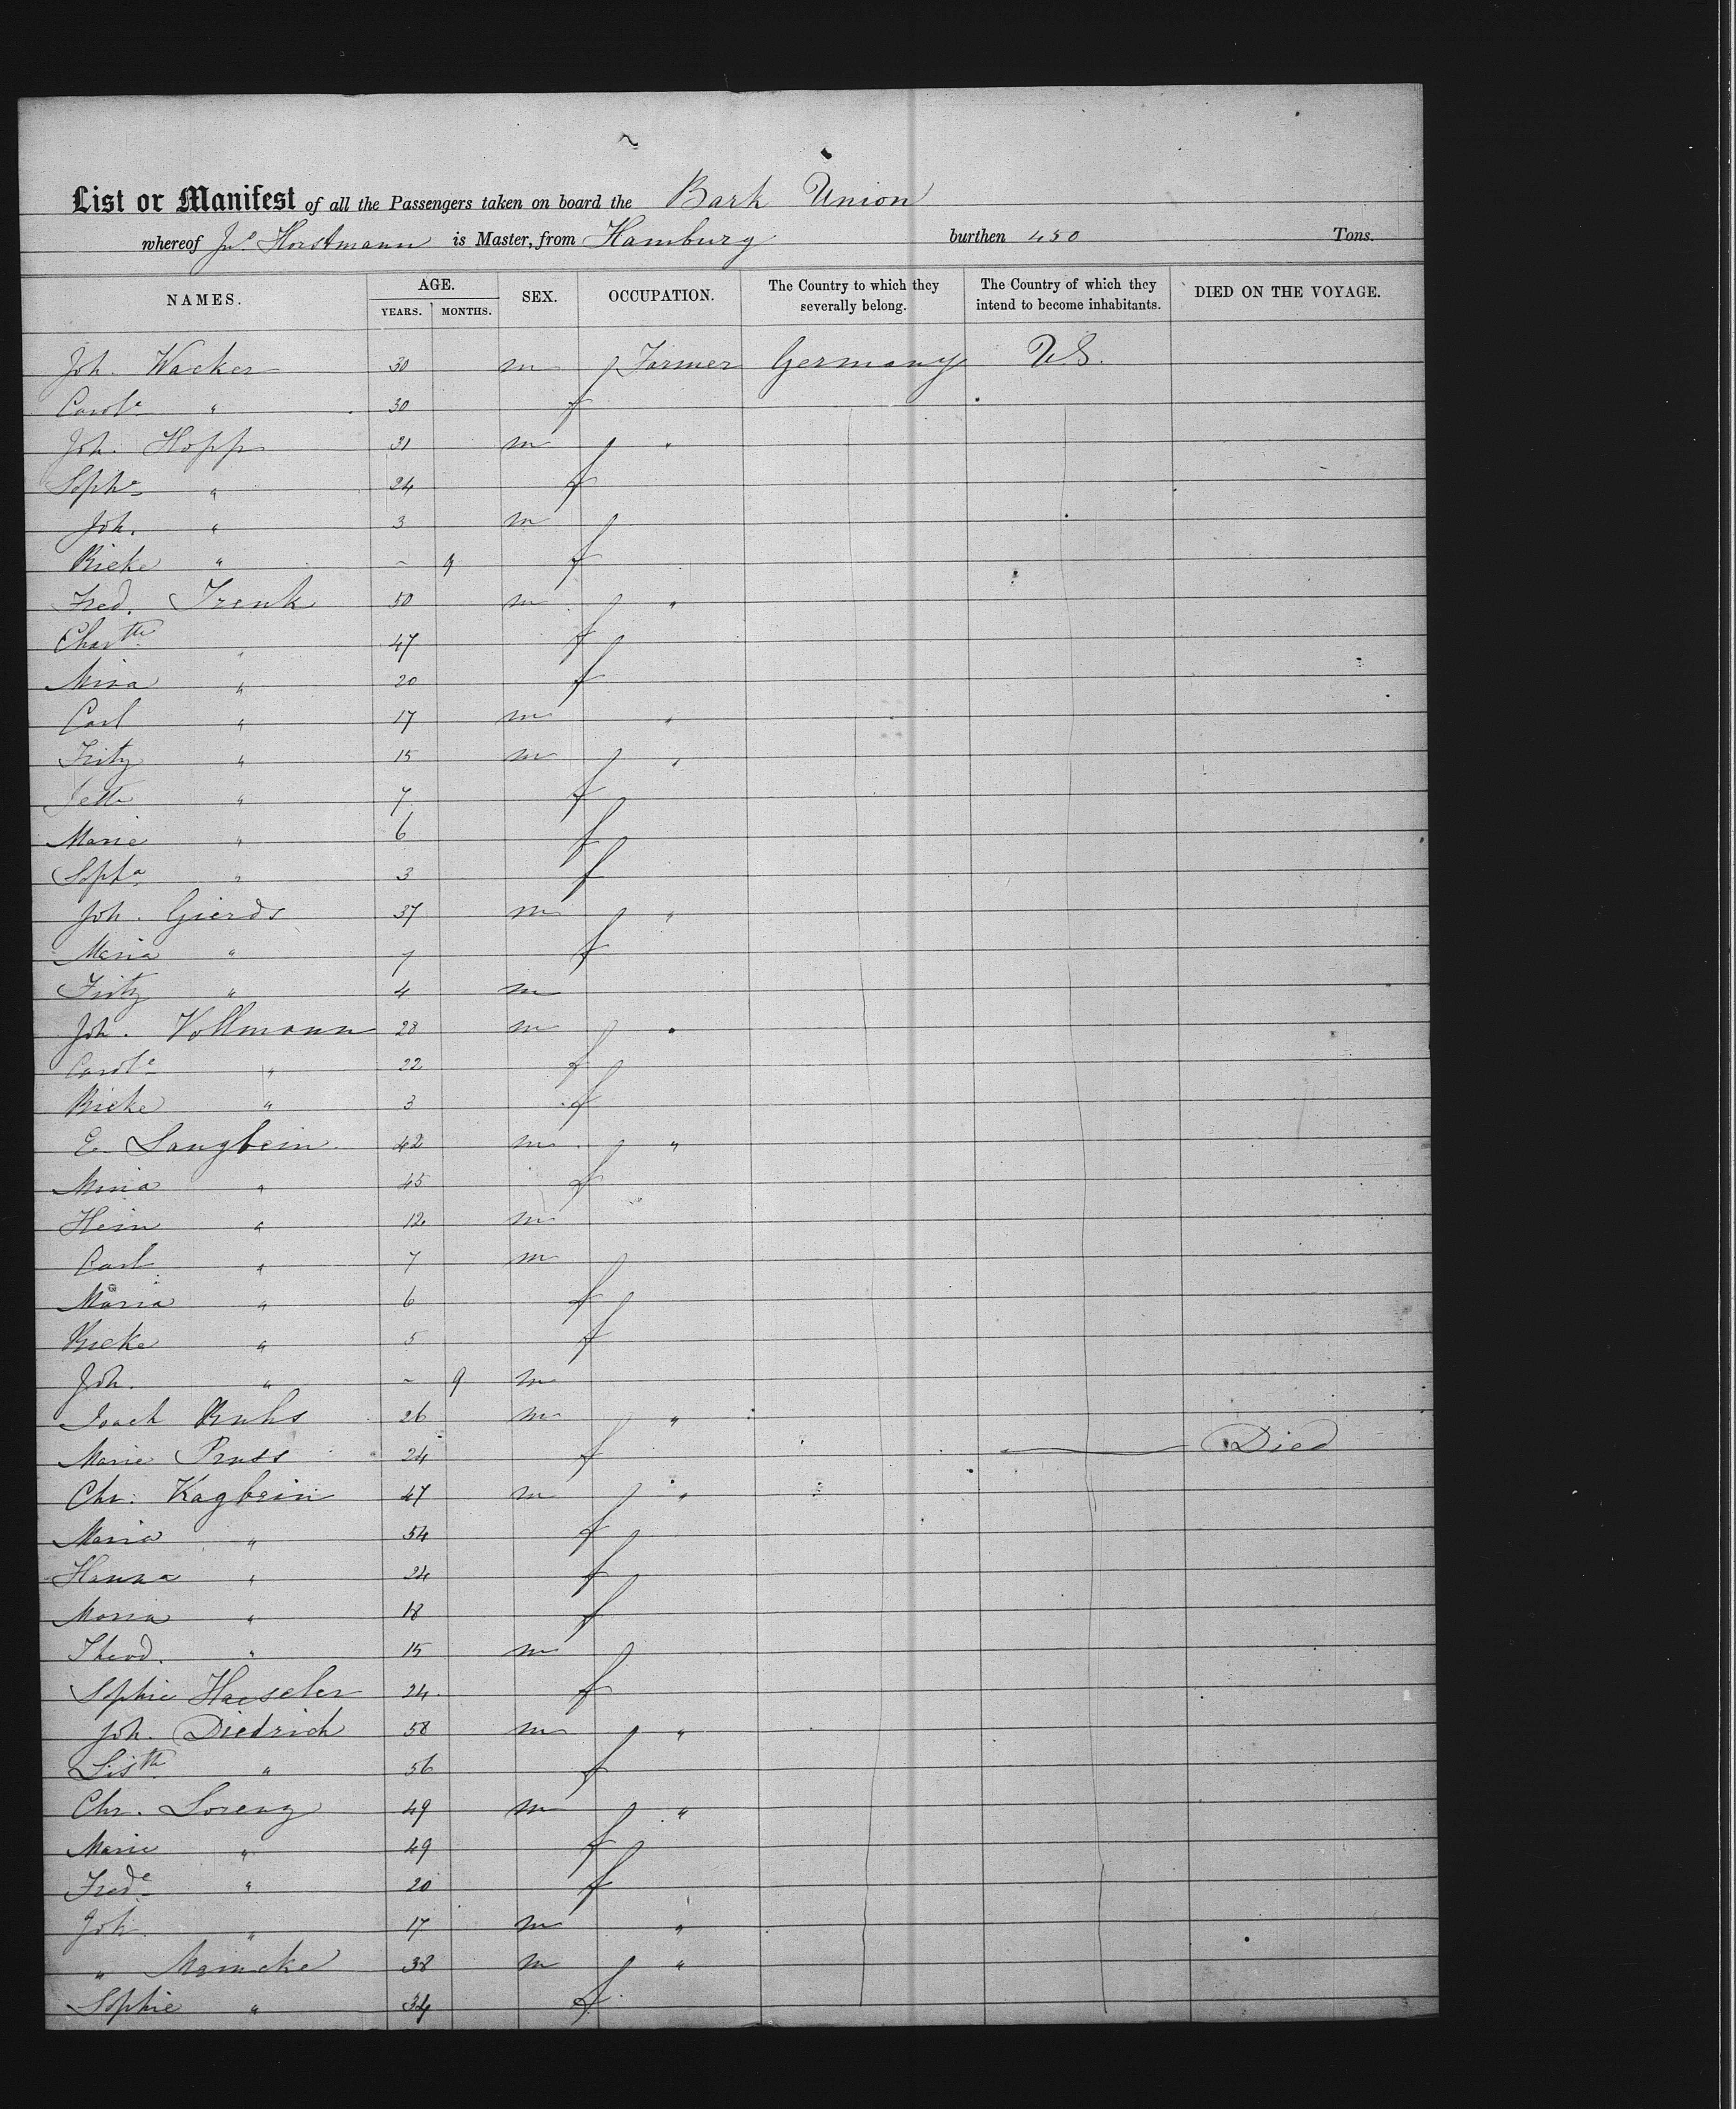 List or Manifest of all the Passengers taken on board the Bark Union
whereof Jno Horstmann is Master, from Hamburg burthen 450 Tons.
NAMES. AGE. YEARS. MONTHS. SEX. OCCUPATION. The Country to which they severally belong. The Country of which they intend to become inhabitants. DIED ON THE VOYAGE.
Joh. Wacker 30 m Farmer Germany US.
Carole " 30 f
Joh. Hopp 31 m "
Sophe " 24 f
Joh. " 3 m
Rieke " - 9 f
Fred. Trenk 50 m "
Chartte " 47 f
Mina " 20 f
Carl " 17 m "
Fritz " 15 m "
Jette " 7 f
Marie " 6 f
Sopha " 3 f
Joh. Gierds 37 m "
Maria " 7 f
Fritz " 4 m
Joh. Vollmann 28 m "
Carole " 22 f
Rieke " 3 f
E. Langbein 42 m "
Mina " 45 f
Hein " 12 m
Carl " 7 m
Maria " 6 f
Rieke " 5 f
Joh. " - 9 m
Joach Ruhs 26 m "
Marie Pruss 24 f Died
Chr. Kagbein 47 m "
Maria " 54 f
Hanna " 24 f
Maria " 18 f
Theod. " 15 m
Sophie Haeseler 24 f
Joh. Diedrich 58 m "
Listh " 56 f
Chr. Lorenz 49 m "
Marie " 49 f
Frede " 20 f
Joh. " 17 m "
" Meincke 38 m "
Sophie " 34 f